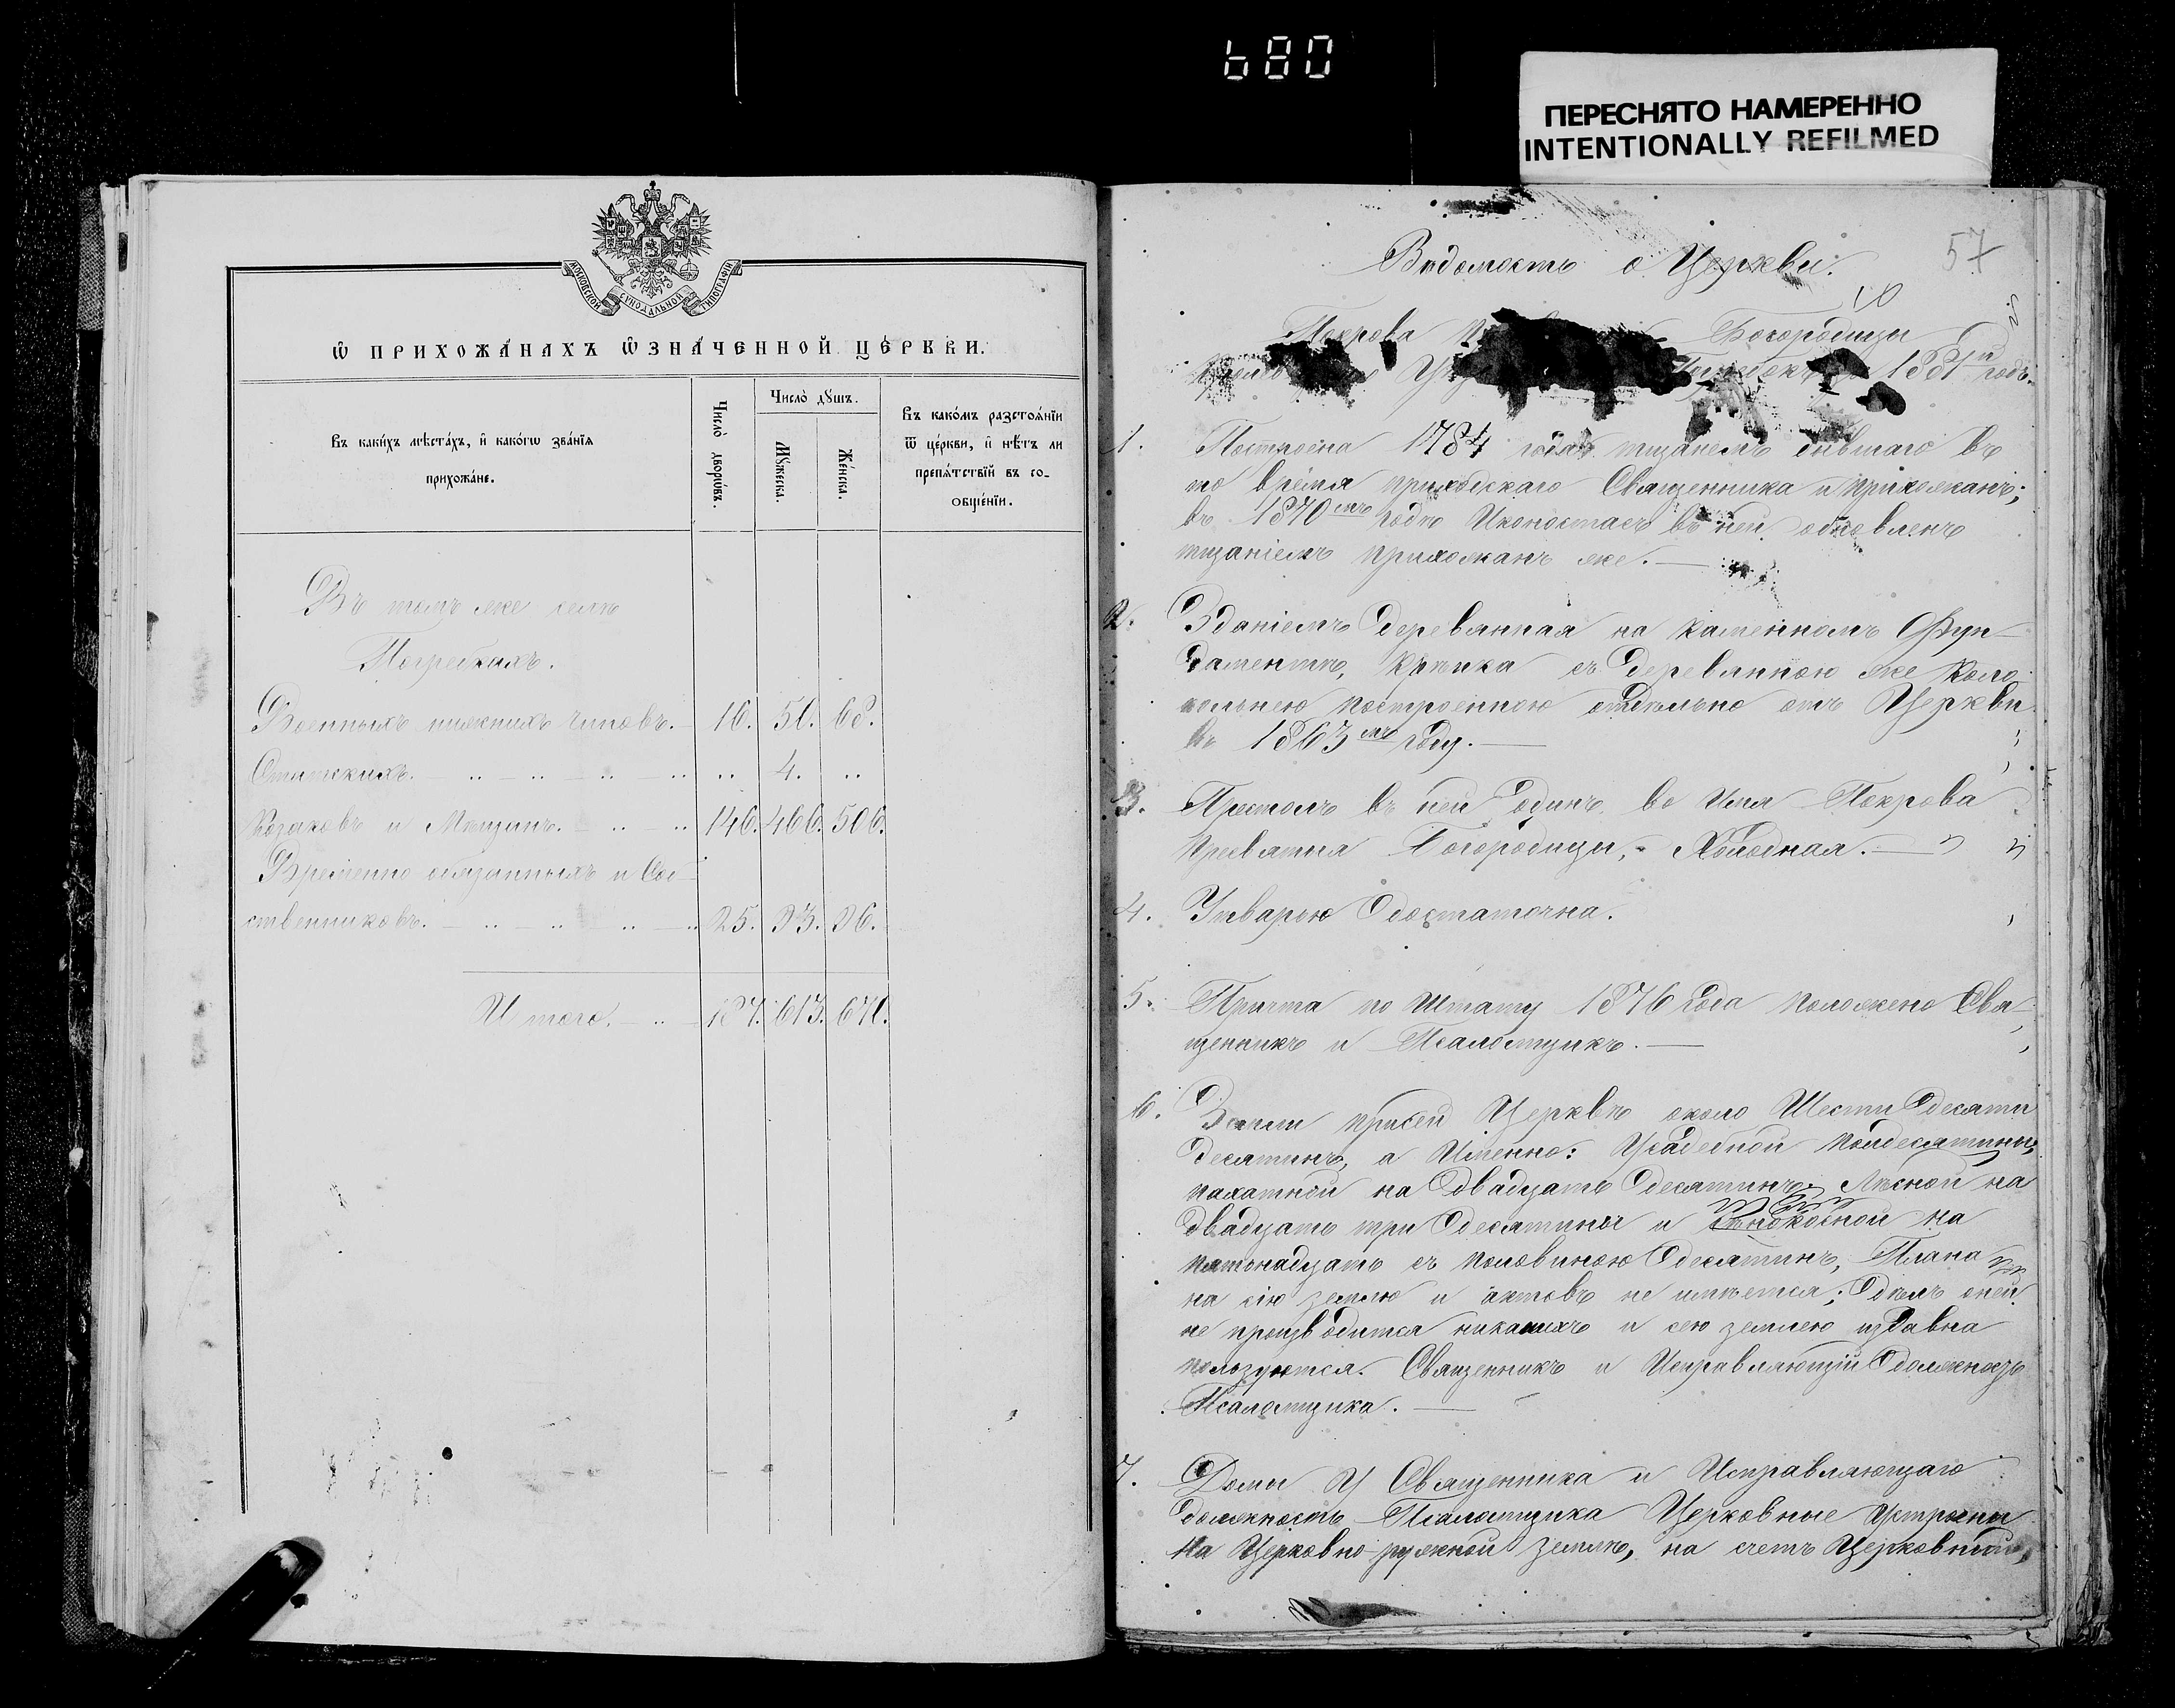 680
ПЕРЕСНЯТО НАМЕРЕННО
INTENTIONALLY REFILMED
МОСКОВСКОЙ СУНОДАЛЬНОЙ ТИПОГРАФІИ
Ѿ ПРИХОЖА́НАХЪ Ѡ҆ЗНА́ЧЕННОЙ ЦЕ́РКВИ.
Въ каки́хъ мѣста́хъ, и҆ како́гѡ зва́нїѧ
прихожа́не.
Число̀ дворѡ́въ.
Число̀ дꙋ́шъ.
Мꙋ́жеска.
Же́нска.
Въ како́мъ разстоѧ́нїи
ѿ це́ркви, и҆ нѣ́тъ ли
препѧ́тствїй въ со-
ѻбще́нїи.
Въ томъ же селѣ
Погребкахъ.
Военныхъ нижнихъ чиновъ. 16. 50. 68.
Статскихъ. 4.
Козаковъ и Мѣщанъ. 146. 466. 506.
Временно обязанныхъ и Соб-
ственниковъ. 25. 93. 96.
Итого. 187. 613. 670.
57
Вѣдомость о Церкви.
Покрова Богородицы
1881 годъ.
1. Построена 1784 года тщаніемъ бывшаго въ
то время приходскаго Священника и прихожанъ;
въ 1870мъ годѣ Иконостасъ въ ней обновленъ
тщаніемъ прихожанъ же.
2. Зданіемъ деревянная на каменномъ Фун-
даментѣ, крѣпка съ деревянною же коло-
кольнею построенною отдѣльно отъ Церкви
въ 1863мъ году.
3. Престолъ въ ней одинъ, во имя Покрова
Пресвятыя Богородицы, Холодная.
4. Утварью достаточна.
5. Причта по Штату 1876 года положено Свя-
щенникъ и Псаломщикъ.
6. Земли при сей Церквѣ около Шести десяти
десятинъ, а Именно: Усадебной полдесятины,
пахатной на двадцать десятинъ, Лѣсной на
двадцать три десятины и сѣнокосной на
пятонадцать съ половиною десятинъ, Плана
на сію землю и актовъ не имѣется; дѣлъ о ней
не производится никакихъ и сею землею издавна
пользуются Священникъ и Исправляющій должность
Псаломщика.
7. Домы у Священника и Исправляющаго
должность Псаломщика Церковные устроены
на Церковно-ружной землѣ, на счетъ Церковный,